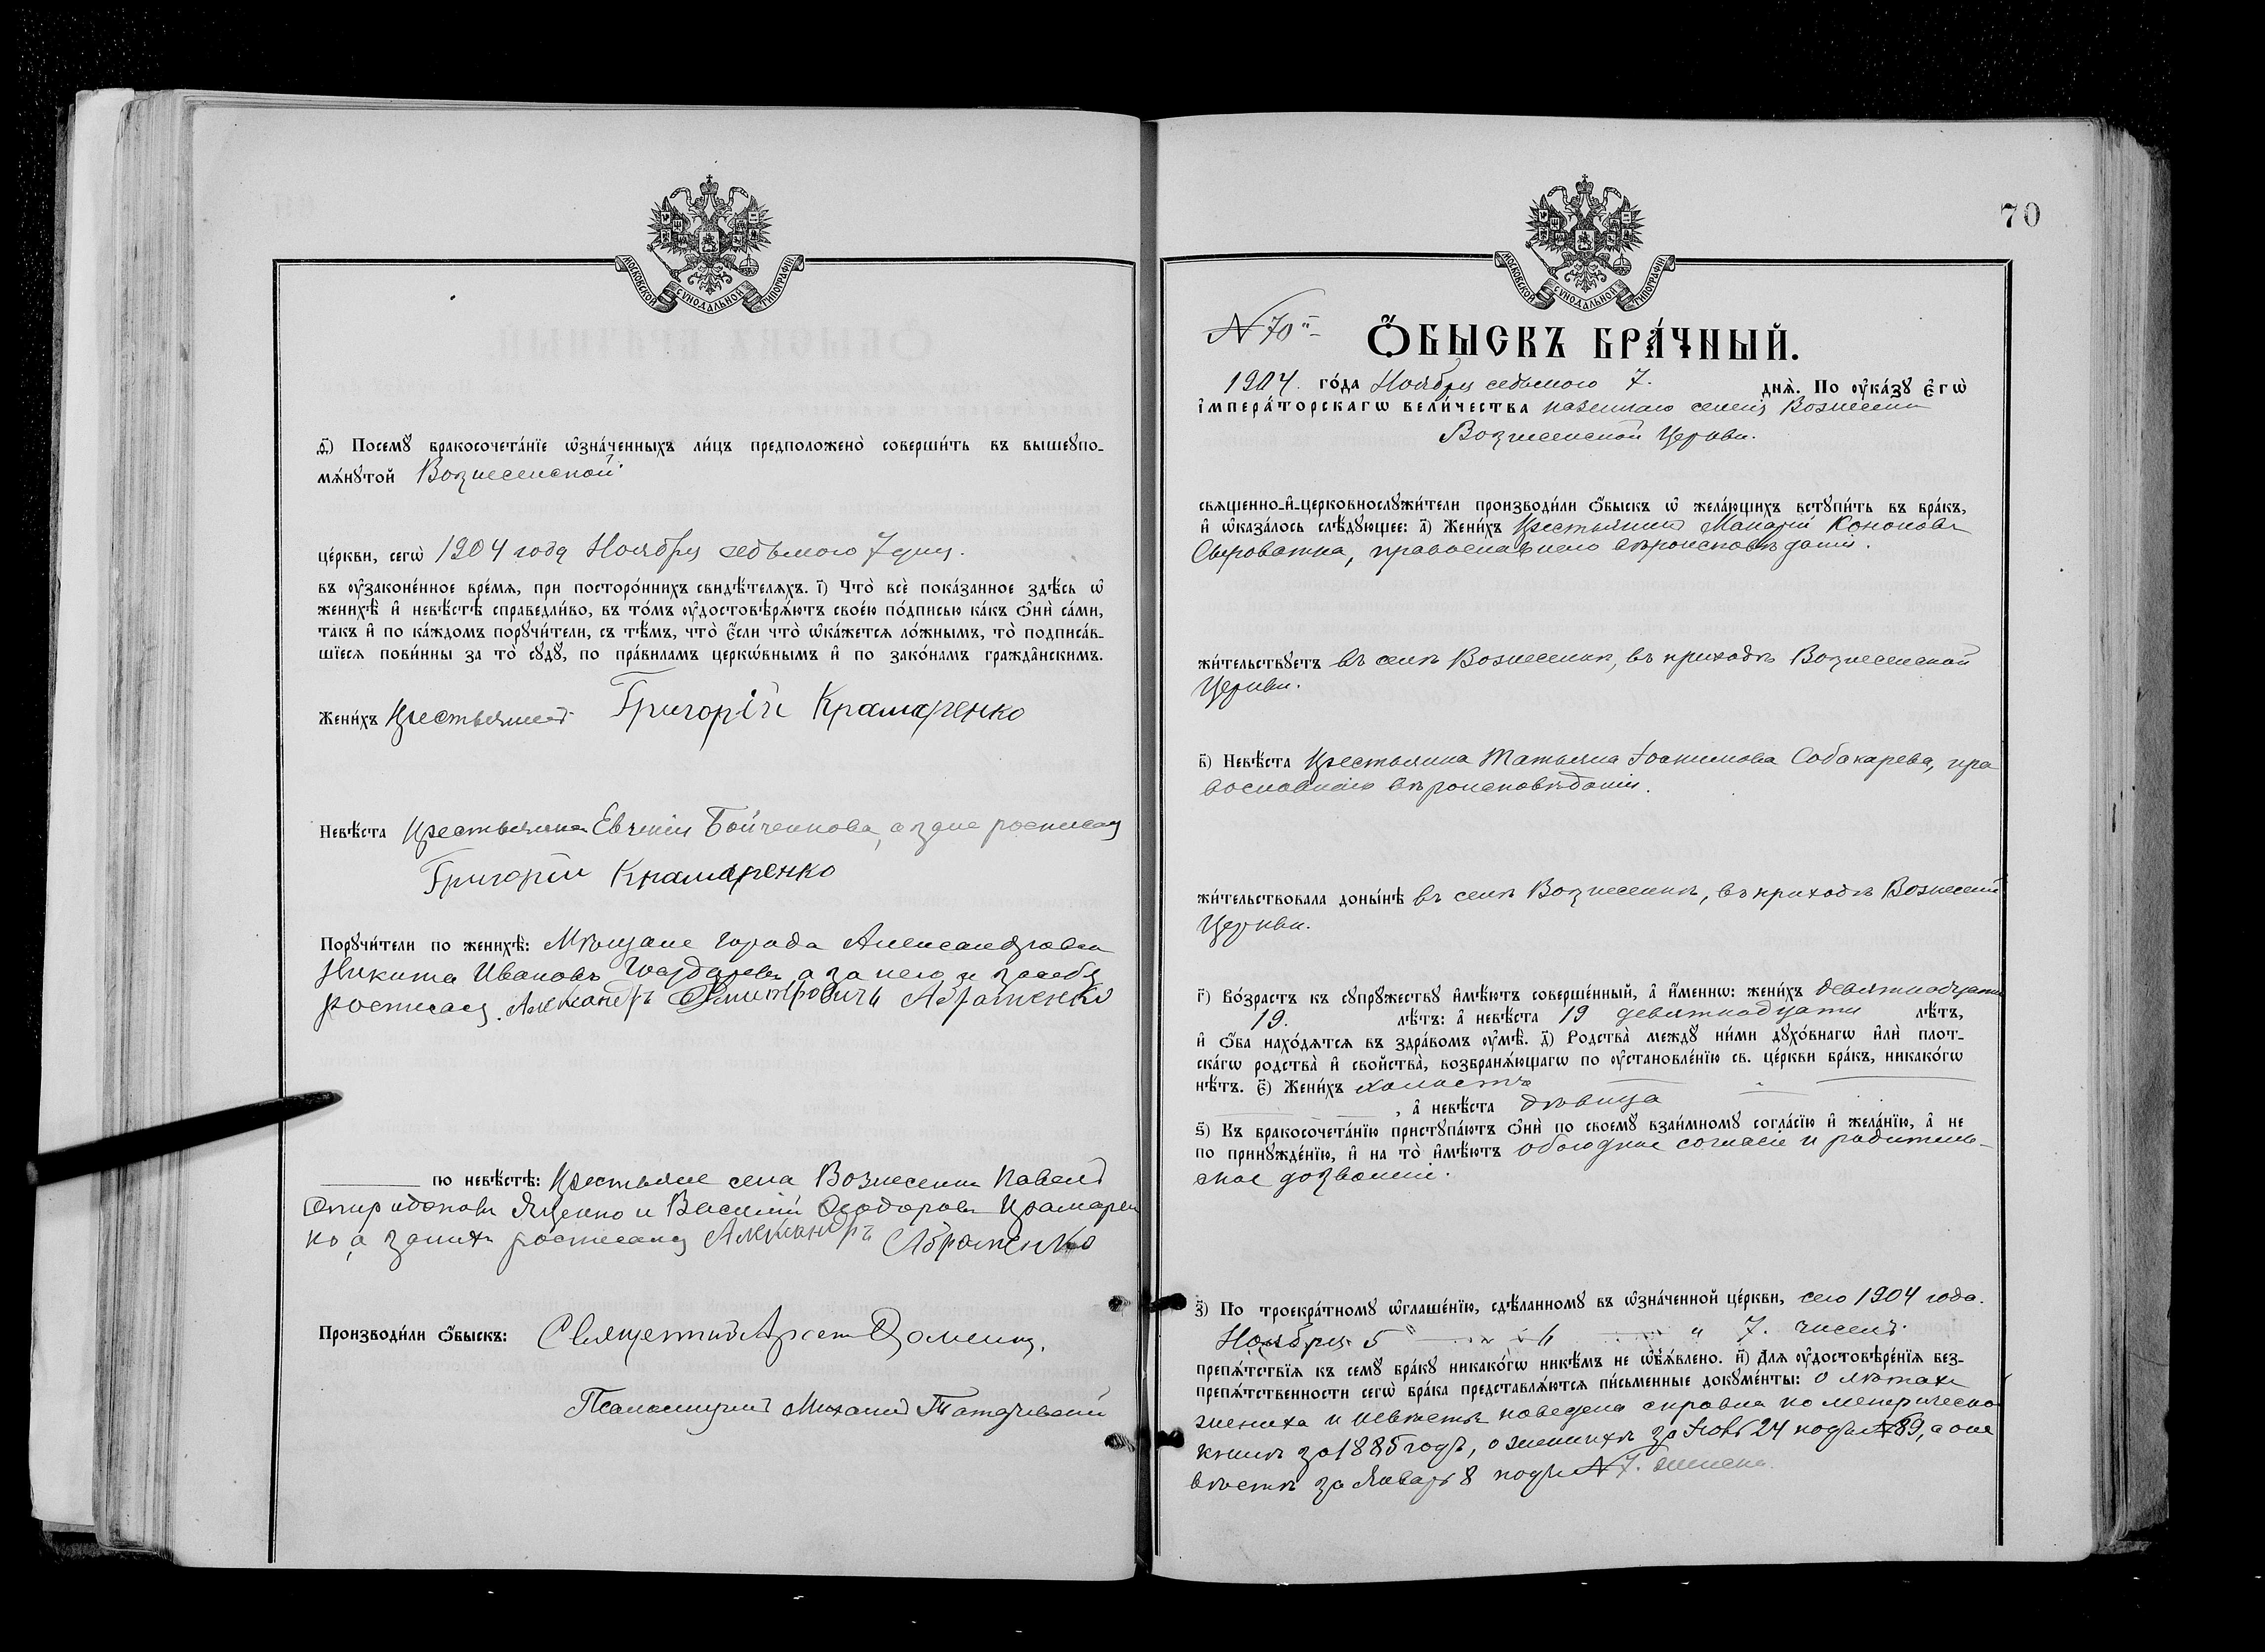 МОСКОВСКОЙ СУНОДАЛЬНОЙ ТИПОГРАФІИ
Посемꙋ̀ бракосочета́нїе ѡ҆зна́ченныхъ ли́цъ предположено̀ соверши́ть въ вышеꙋпо-
мѧ́нꙋтой Вознесенской
це́ркви, сегѡ̀ 1904 года Ноября седьмого 7 дня.
въ ᲂу҆законе́нное вре́мѧ, при посторо́ннихъ свидѣ́телѧхъ. і҃) Что̀ всѐ пока́занное здѣ́сь ѡ҆
женихѣ̀ и҆ невѣ́стѣ справедли́во, въ то́мъ ᲂу҆достовѣрѧ́ютъ свое́ю по́дписью ка́къ ѻ҆нѝ са́ми,
та́къ и҆ по ка́ждомъ порꙋчи́тели, съ тѣ́мъ, что̀ є҆́сли что̀ ѡ҆ка́жетсѧ ло́жнымъ, то̀ подписа́в-
шїесѧ пови́нны за то̀ сꙋдꙋ̀, по пра́виламъ церкѡ́внымъ и҆ по зако́намъ гражда̑нскимъ.
Жени́хъ крестьянинъ Григорій Крамаренко
Невѣ́ста крестьянка Евгенія Бойченкова, а за нее росписался
Григорій Крамаренко
Порꙋчи́тели по женихѣ̀: Мѣщане города Александровска
Никита Ивановъ а за него и за себя
росписался Александръ Дмитровичъ Абраменко
по невѣ́стѣ: крестьяне села Вознесенки Павелъ
Спиридоновъ Яценко и Василій Ѳеодоровъ Крамарен
ко, а за нихъ росписался Александръ Абраменко
Производи́ли ѻ҆́быскъ: Священникъ
Псаломщикъ Михаилъ
70
МОСКОВСКОЙ СУНОДАЛЬНОЙ ТИПОГРАФІИ
№ 70й
Ѻ҆́БЫСКЪ БРА́ЧНЫЙ.
1904. го́да Ноября седьмого 7. днѧ̀. По ᲂу҆ка́зꙋ є҆гѡ̀
і҆мпера́торскагѡ вели́чества казеннаго селенія Вознесенки
Вознесенской Церкви.
свѧщенно-и҆-церковнослꙋжи́тели производи́ли ѻ҆́быскъ ѡ҆ жела́ющихъ встꙋпи́ть въ бра́къ,
и҆ ѡ҆каза́лось слѣ́дꙋющее: а҃) Жени́хъ крестьянинъ Макарій Кононовъ
Сыроватка, православнаго вѣроисповѣданія.
жи́тельствꙋетъ въ селѣ Вознесенкѣ, въ приходѣ Вознесенской
Церкви.
в҃) Невѣ́ста крестьянка Татьяна Іоакимова Собакарева, пра
вославнаго вѣроисповѣданія.
жи́тельствовала доны́нѣ въ селѣ Вознесенкѣ, въ приходѣ Вознесенской
Церкви.
г҃) Во́зрастъ къ сꙋпрꙋ́жествꙋ и҆мѣ́ютъ соверше́нный, а҆ и҆́меннѡ: жени́хъ девятнадцати
19. лѣ́тъ: а҆ невѣ́ста 19 девятнадцати лѣ́тъ,
и҆ ѻ҆́ба нахо́дѧтсѧ въ здра́вомъ ᲂу҆мѣ̀. д҃) Родства̀ междꙋ̀ ни́ми дꙋхо́внагѡ и҆лѝ плот-
ска́гѡ родства̀ и҆ свойства̀, возбранѧ́ющагѡ по ᲂу҆становле́нїю св. це́ркви бра́къ, никако́гѡ
нѣ́тъ. є҃) Жени́хъ холостъ
, а҆ невѣ́ста дѣвица
ѕ҃) Къ бракосочета́нїю пристꙋпа́ютъ ѻ҆нѝ по своемꙋ̀ взаи́мномꙋ согла́сїю и҆ жела́нїю, а҆ не
по принꙋжде́нїю, и҆ на то̀ и҆мѣ́ютъ обоюдное согласіе и родитель-
ское дозволеніе.
з҃) По троекра́тномꙋ ѡ҆глаше́нїю, сдѣ́ланномꙋ въ ѡ҆зна́ченной це́ркви, сего 1904 года.
Ноября 5 " " 7. чиселъ
препѧ́тствїѧ къ семꙋ̀ бра́кꙋ никако́гѡ никѣ́мъ не ѡ҆бъѧ́влено. и҃) Длѧ ᲂу҆достовѣре́нїѧ без-
препѧ́тственности сегѡ̀ бра́ка представлѧ́ютсѧ пи́сьменные докꙋме́нты: о лѣтахъ
жениха и невѣсты наведена справка по метрической
книгѣ за 1885 годъ, о женихѣ за Ноябр 24 подъ № 89, а о не
вѣстѣ за Январь 8 подъ № 7.